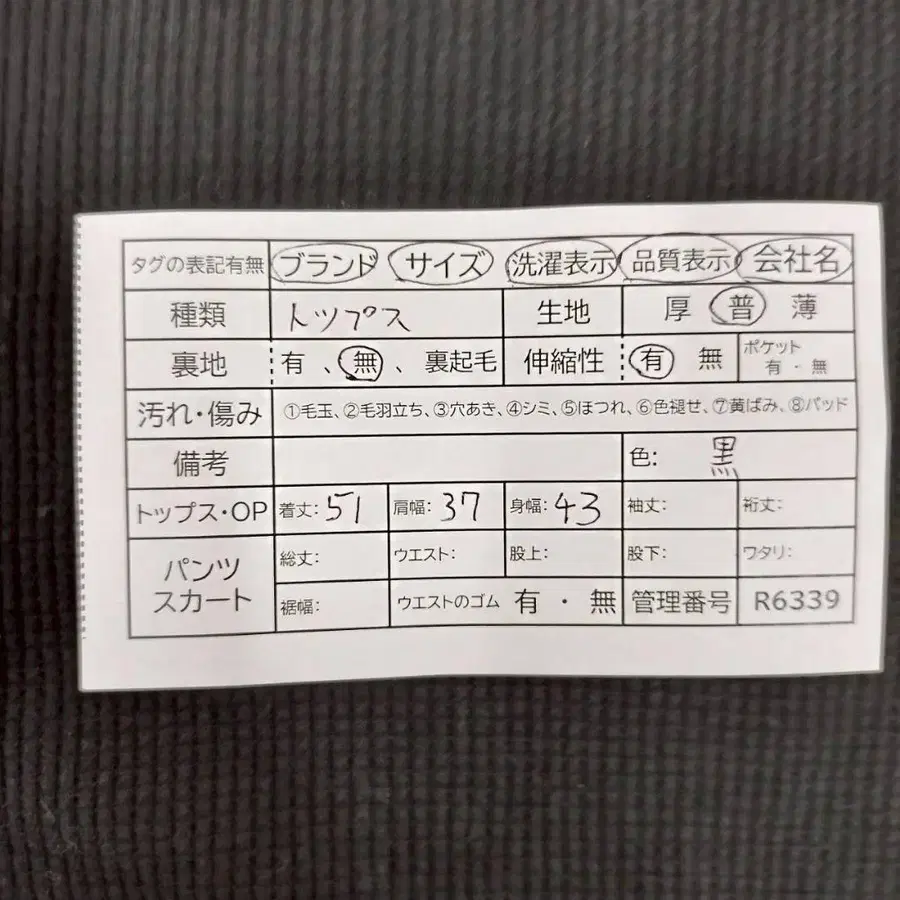 タグの表記有無 ブランド サイズ 洗濯表示 品質表示 会社名
種類 トップス 生地 厚 普 薄
裏地 有、無、裏起毛 伸縮性 有 無 ポケット 有・無
汚れ・傷み ①毛玉、②毛羽立ち、③穴あき、④シミ、⑤ほつれ、⑥色褪せ、⑦黄ばみ、⑧パッド
備考 色: 黒
トップス・OP 着丈: 51 肩幅: 37 身幅: 43 袖丈: 裄丈:
パンツ スカート 総丈: ウエスト: 股上: 股下: ワタリ:
裾幅: ウエストのゴム 有・無 管理番号 R6339